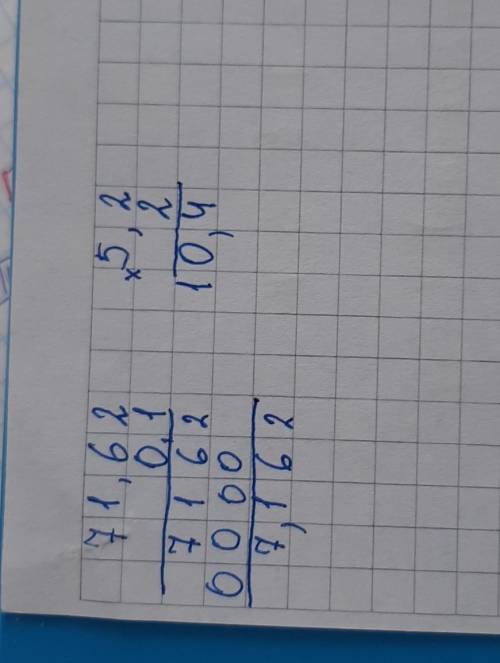 71,62
0,1
7162
0000
7,162
×5,2
2
10,4